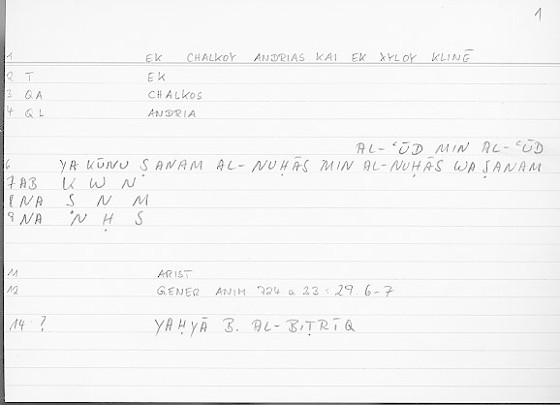 1
1 EK CHALKOY ANDRIAS KAI EK XYLOY KLINĒ
2 T EK
3 QA CHALKOS
4 QL ANDRIA
AL-ʿŪD MIN AL-ʿŪD
6 YAKŪNU ṢANAM AL-NUḤĀS MIN AL-NUḤĀS WAṢANAM
7 AB K W N
8 NA Ṣ N M
9 NA N Ḥ S
11 ARIST
12 GENER ANIM 724 a 23 : 29. 6-7
14 ? YAḤYĀ B. AL-BIṬRĪQ